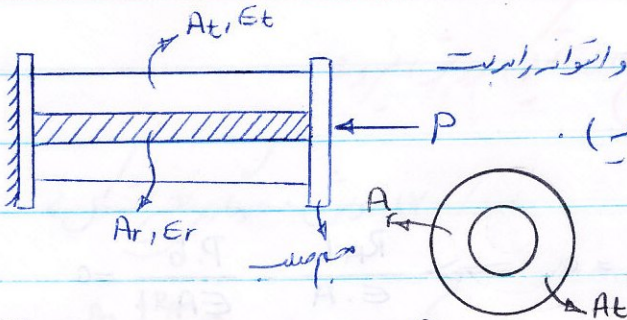 At, Et
و استوانه را بدست
P
Ar, Er
صلب
Ar
At